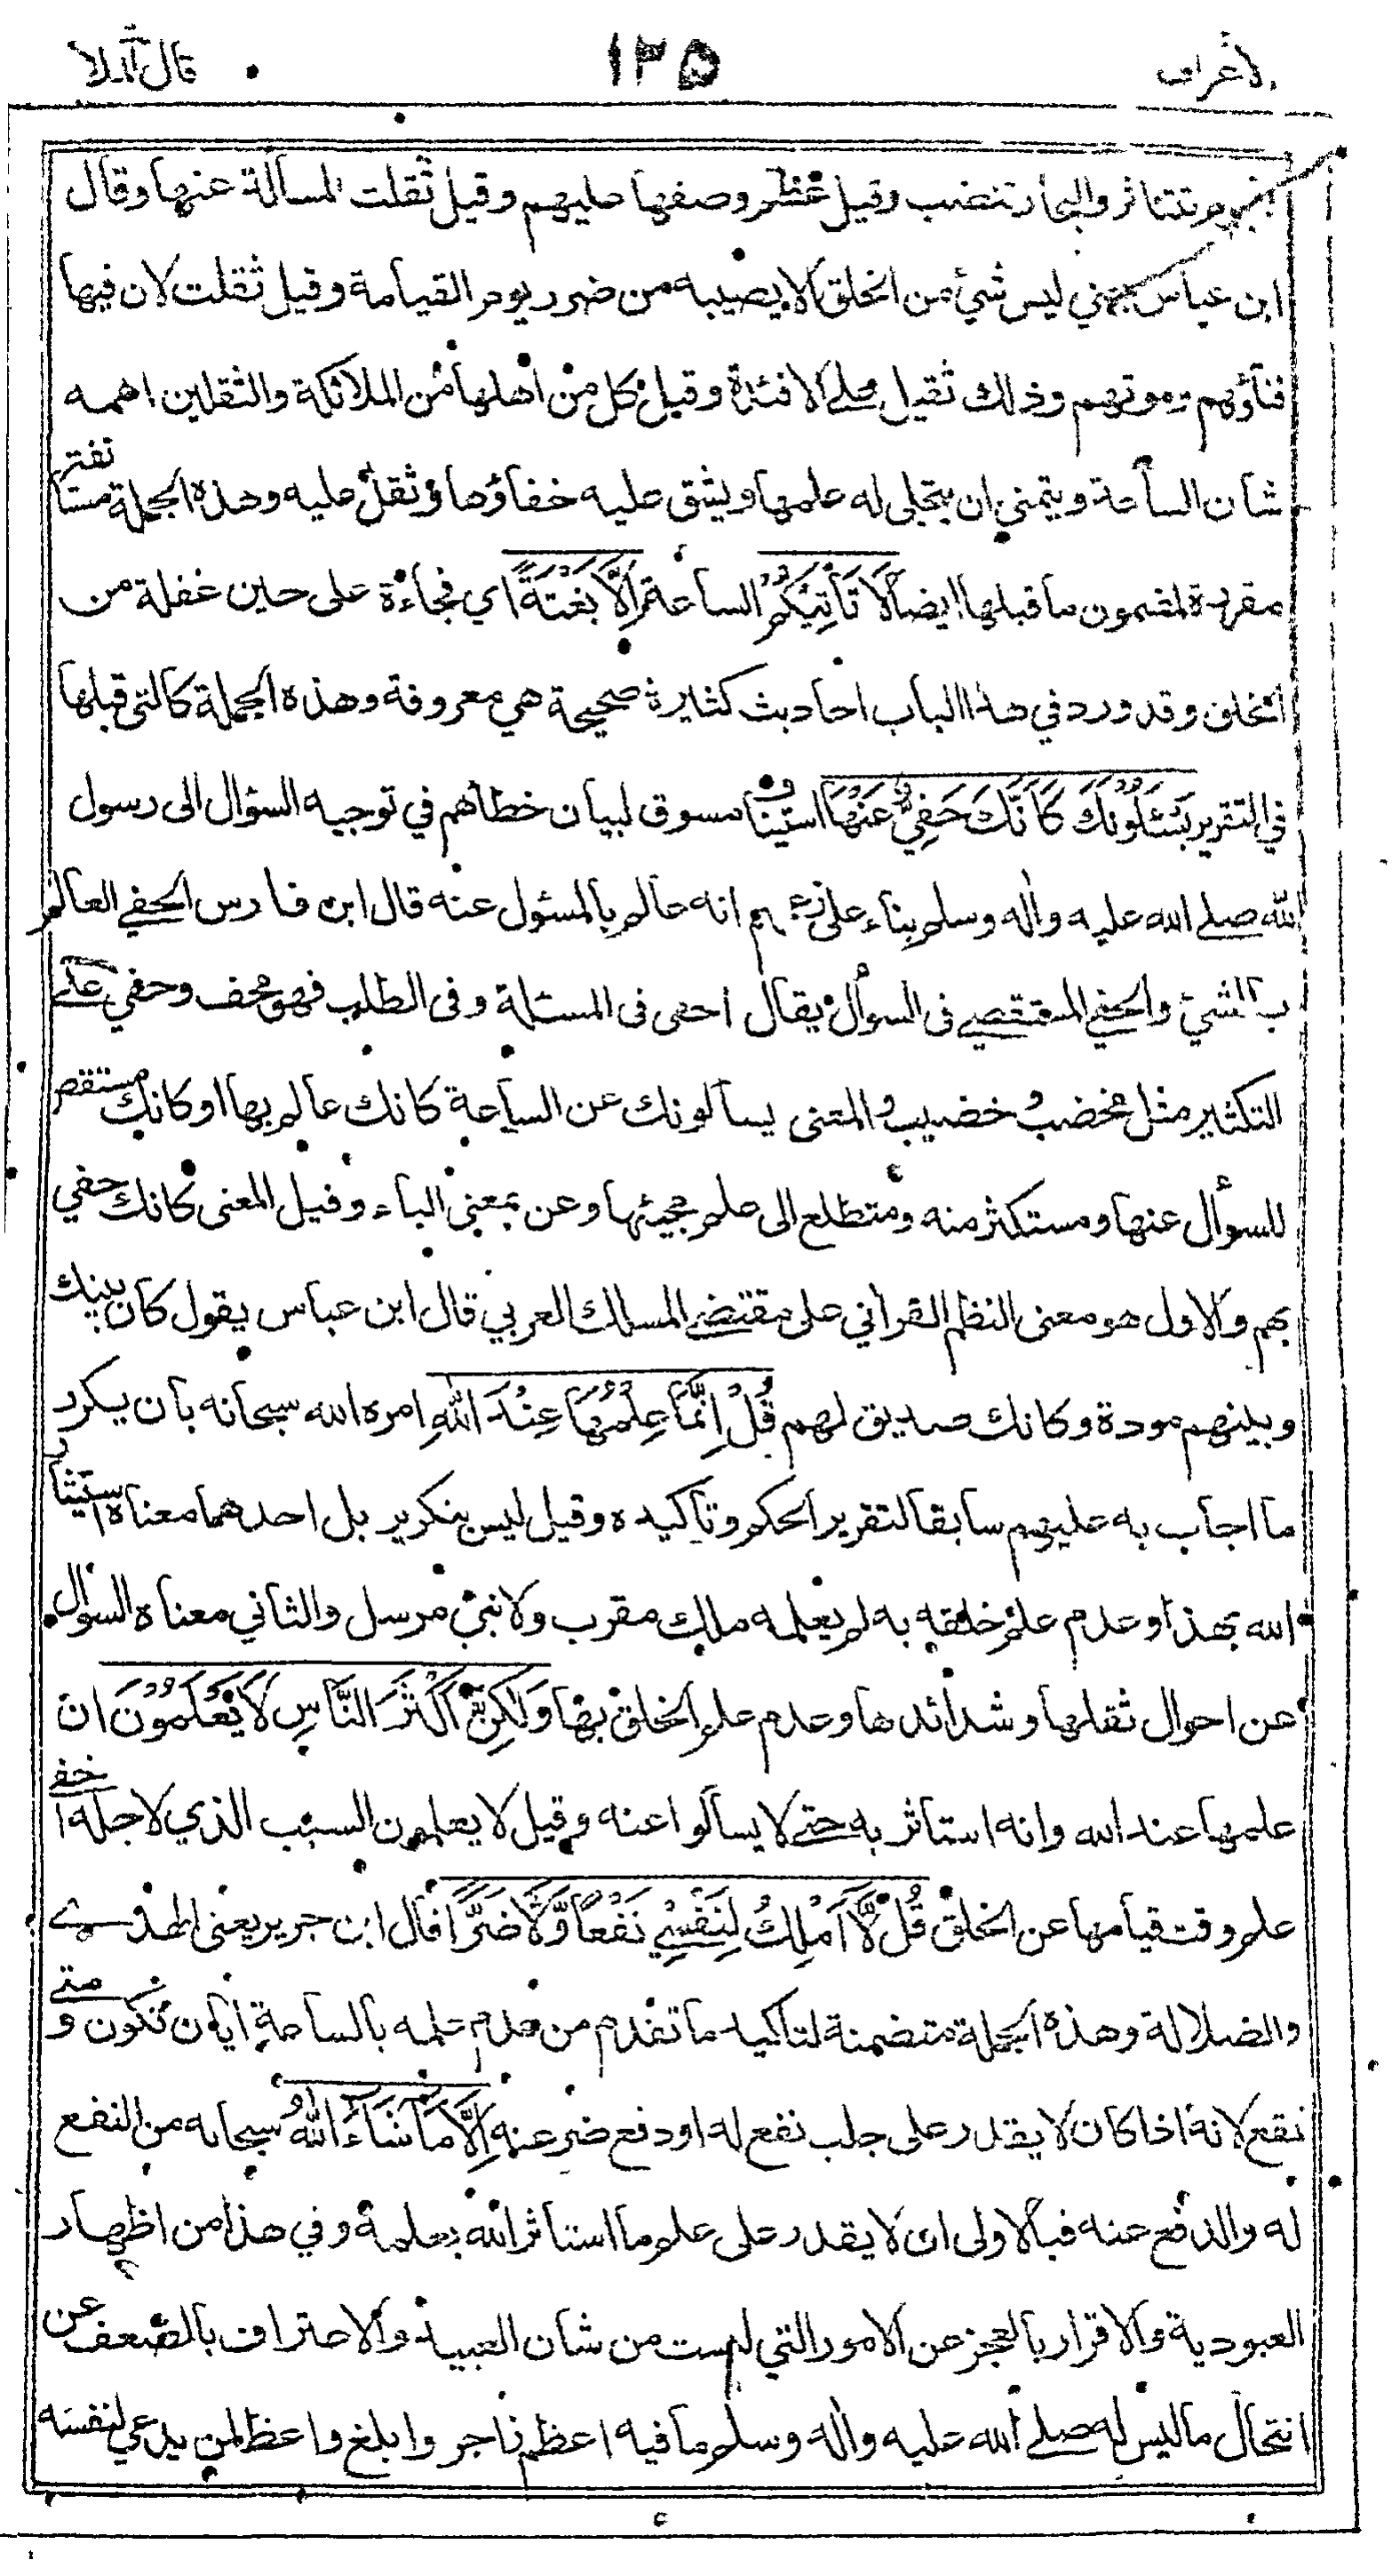 الاعراف ١٢٥ قال الملأ
النجوم تتناثر والبحار تنضب وقيل عظم وصفها عليهم وقيل ثقلت المسألة عنها وقال
ابن عباس يعني ليس شيء من الخلق الا يصيبه من ضرر يوم القيامة وقيل ثقلت لان فيها
فناؤهم وموتهم وذلك ثقيل على الافئدة وقيل كل من اهلها من الملائكة والثقلين اهمه
شأن الساعة ويتمنى ان يتجلى له علمها ويشق عليه خفاؤها وثقل عليه وهذه الجملة مستأنفة
مقررة لمضمون ما قبلها ايضا لَا تَأْتِيْكُمْ الساعة اِلَّا بَغْتَةً اي فجاءة على حين غفلة من
الخلق وقد ورد في هذا الباب احاديث كثيرة صحيحة هي معروفة وهذه الجملة كالتي قبلها
في التقرير يَسْئَلُوْنَكَ كَاَنَّكَ حَفِيٌّ عَنْهَا استيناف مسوق لبيان خطأهم في توجيه السؤال الى رسول
الله صلى الله عليه واٰله وسلم بناء على زعمهم انه عالم بالمسئول عنه قال ابن فارس الحفي العالم
بالشيء والحفي المستقصي في السؤال يقال احفى في المسئلة وفى الطلب فهو محف وحفي على
التكثير مثل مخضب وخضيب والمعنى يسألونك عن الساعة كانك عالم بها او كانك مستقص
للسؤال عنها ومستكثر منه ومتطلع الى علم مجيئها وعن بمعنى الباء وقيل المعنى كانك حفي
بهم والاول هو معنى النظم القراني على مقتضى المسلك العربي قال ابن عباس يقول كأن بينك
وبينهم مودة وكانك صديق لهم قُلْ اِنَّمَا عِلْمُهَا عِنْدَ اللهِ امره الله سبحانه بأن يكرر
ما اجاب به عليهم سابقا لتقرير الحكم وتاكيده وقيل ليس بتكرير بل احدهما معناه استيثار
الله بهذا وعدم علم خلقه به لم يعلمه ملك مقرب ولا نبي مرسل والثاني معناه السؤال
عن احوال ثقلها وشدائدها وعدم علم الخلق بها وَلٰكِنَّ اَكْثَرَ النَّاسِ لَا يَعْلَمُوْنَ ان
علمها عند الله وانه استاثر به حتى لا يسألوا عنه وقيل لا يعلمون السبب الذي لاجله اخفى
علم وقت قيامها عن الخلق قُلْ لَّا اَمْلِكُ لِنَفْسِيْ نَفْعًا وَّلَا ضَرًّا قال ابن جرير يعني الهدى
والضلالة وهذه الجملة متضمنة لتاكيد ما تقدم من عدم علمه بالساعة ايان تكون ومتى
تقع لانه اذا كان لا يقدر على جلب نفع له او دفع ضر عنه اِلَّا مَا شَاءَ اللهُ سبحانه من النفع
له والدفع عنه فبالاولى ان لا يقدر على علم ما استاثر الله بعلمه وفي هذا من اظهار
العبودية والاقرار بالعجز عن الامور التي ليست من شأن العبيد والاعتراف بالضعف عن
انتحال ما ليس له صلى الله عليه واٰله وسلم ما فيه اعظم زاجر وابلغ واعظ لمن يدعي لنفسه